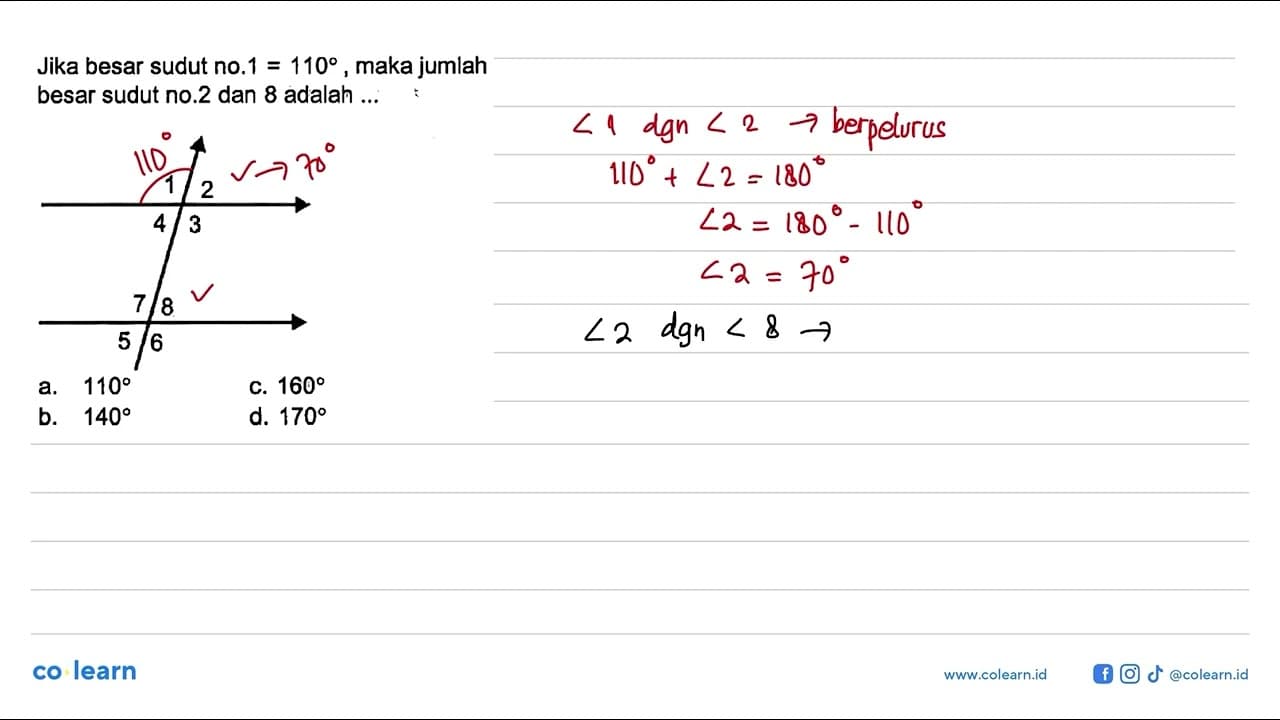 Jika besar sudut no.1 = 110°, maka jumlah
besar sudut no.2 dan 8 adalah ...
110°
1 2 ✓→ 70°
4 3
7 8 ✓
5 6
a. 110° c. 160°
b. 140° d. 170°
∠1 dgn ∠2 → berpelurus
110° + ∠2 = 180°
∠2 = 180° - 110°
∠2 = 70°
∠2 dgn ∠8 →
co learn
www.colearn.id @colearn.id